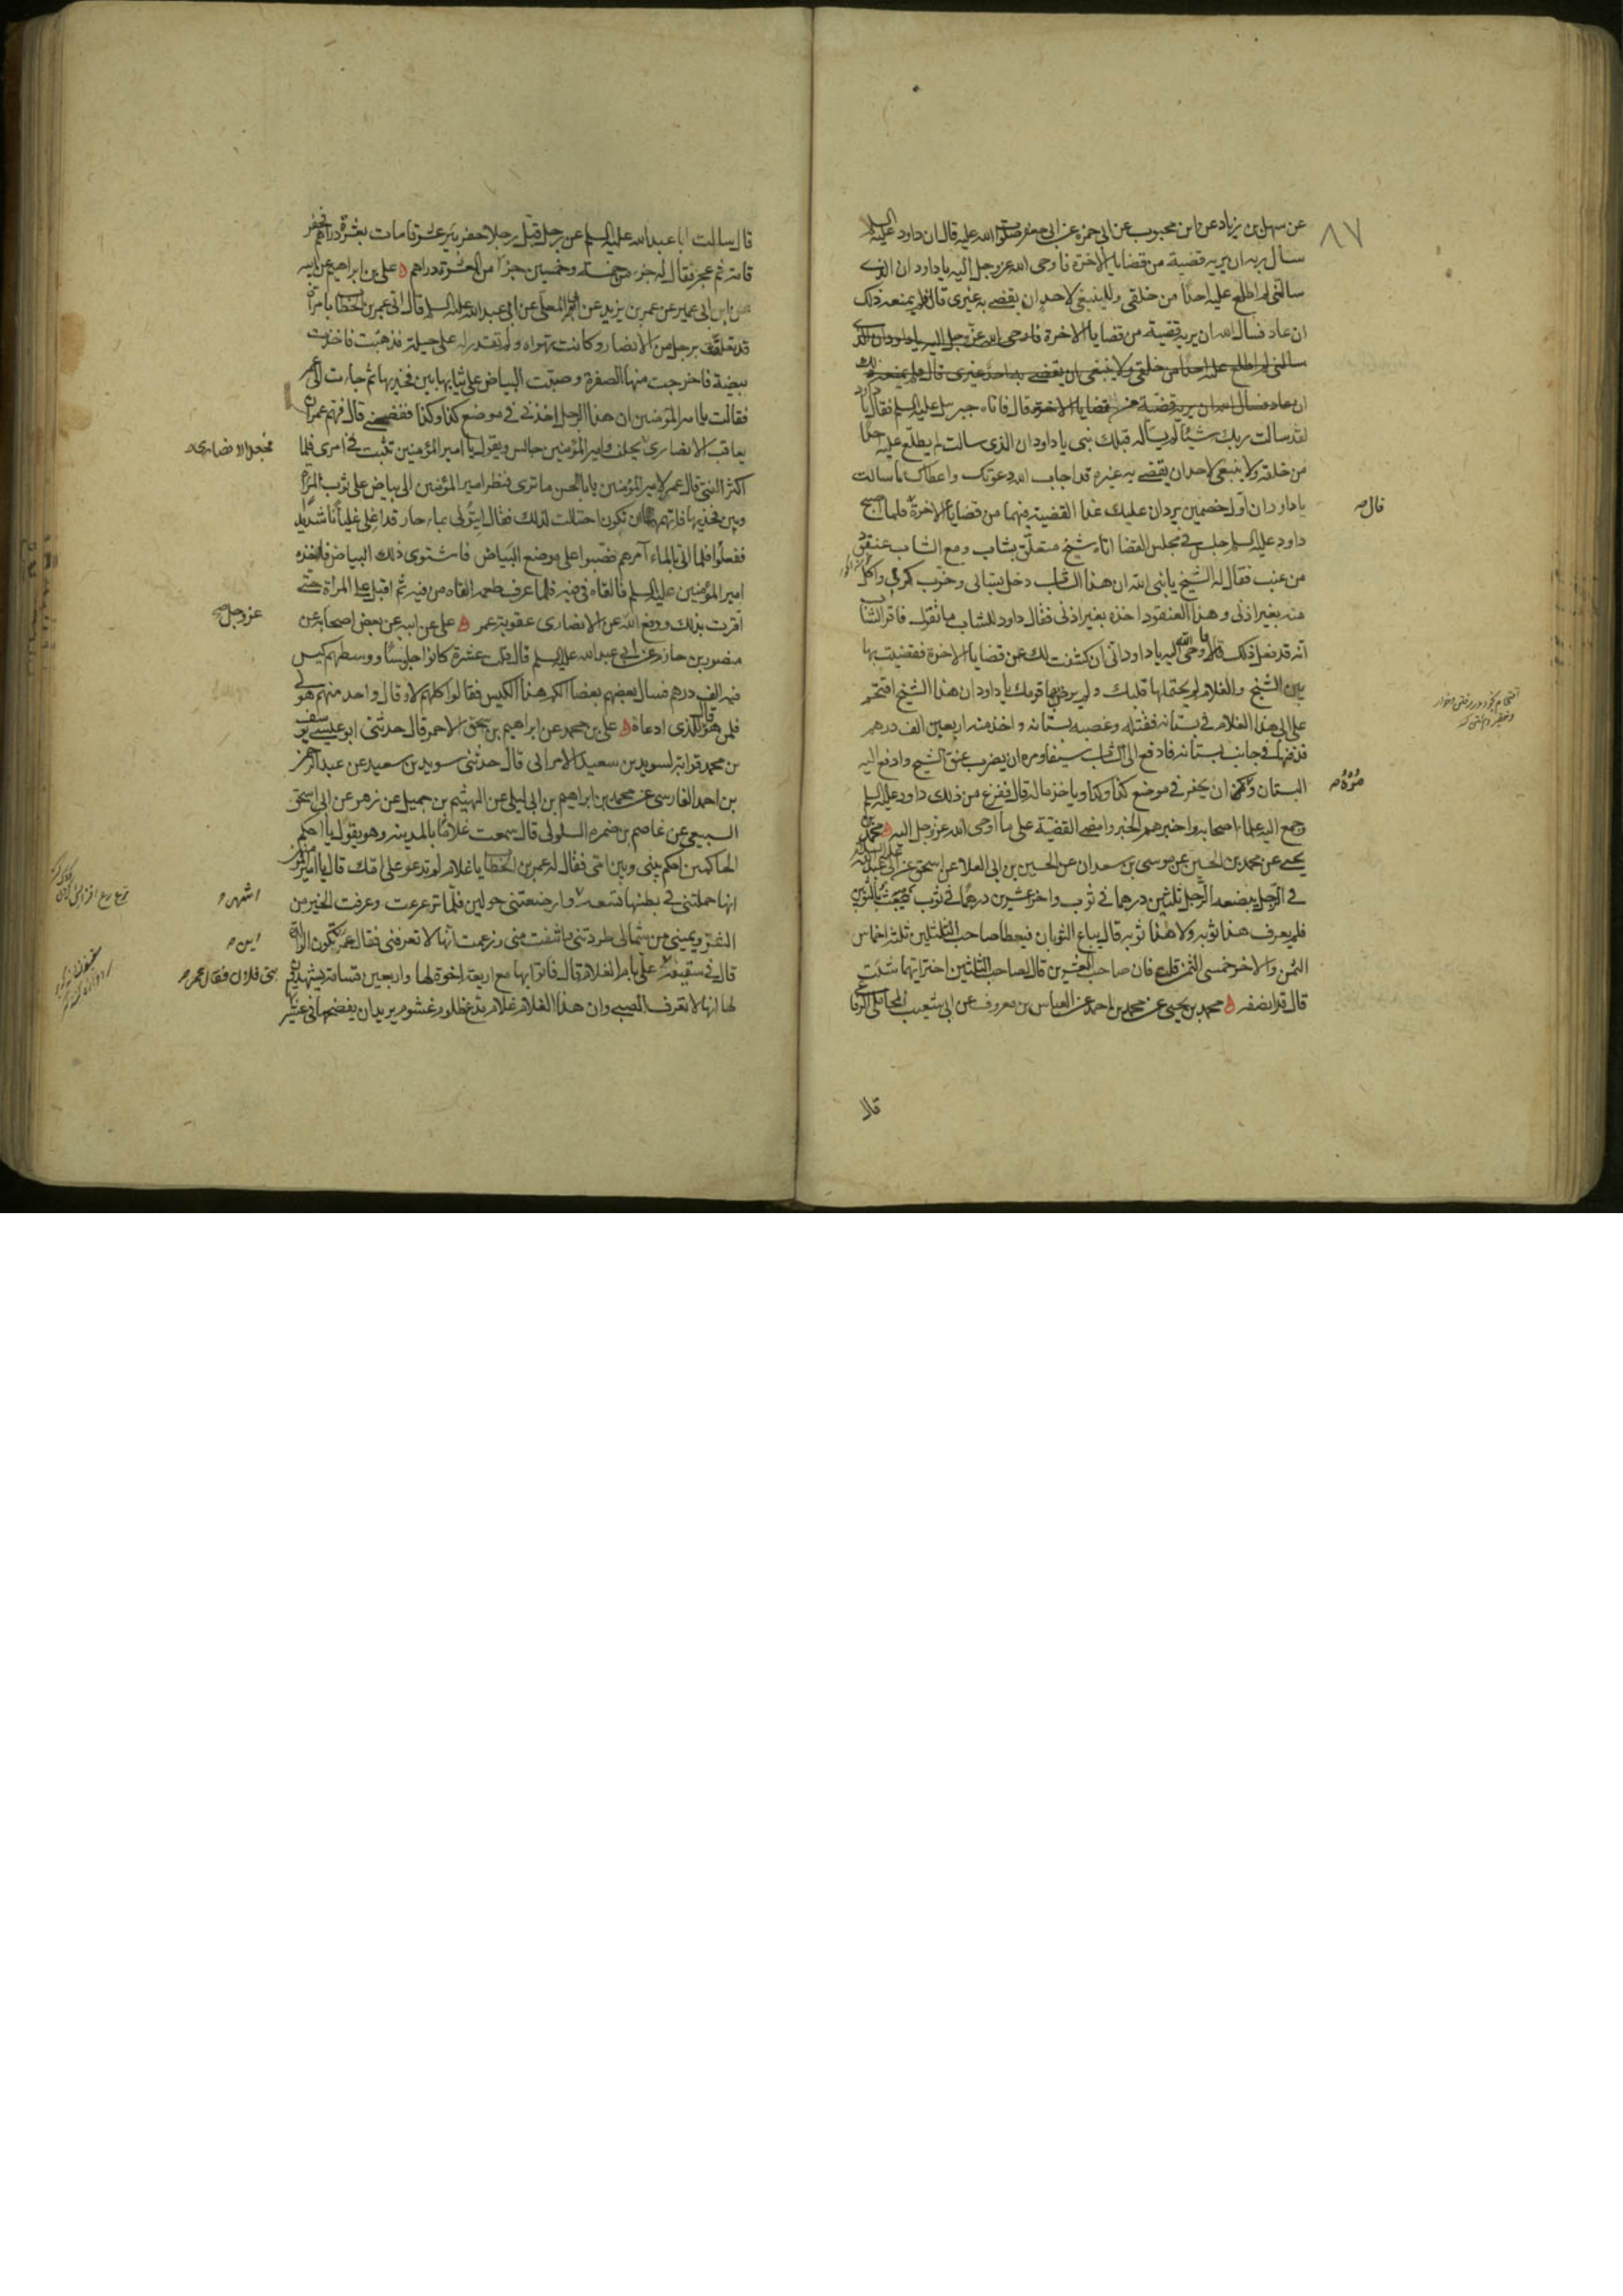 ٨٧
عن سهل بن زياد عن ابن محبوب عن ابى حمزة عن ابى جعفر صلوات الله عليه قال ان داود عليه السلام
سأل ربه ان يريه قضية من قضايا الاخرة فاوحى الله عز وجل اليه يا داود ان الذى
سالتنى لم اطلع عليه احدا من خلقى ولا ينبغى لاحد ان يقضى به غيرى قال فلم يمنعه ذلك
ان عاد فسال الله ان يريه قضية من قضايا الاخرة فاوحى الله عز وجل اليه يا داود ان الذى
سالتنى لم اطلع عليه احدا من خلقى ولا ينبغى ان يقضى به احد غيرى قال فلم يمنعه ذلك
ان عاد فسال الله ان يريه قضية من قضايا الاخرة قال فاتاه جبرئيل عليه السلم فقال يا داود
لقد سالت ربك شيئا لم يساله قبلك نبى يا داود ان الذى سالت لم يطلع عليه احدا
من خلقه ولا ينبغى لاحد ان يقضى به غيره قد اجاب الله دعوتك واعطاك ما سالت
يا داود ان اول خصمين يردان عليك غدا القضية فيهما من قضايا الاخرة فلما اصبح
قال صح
داود عليه السلم جلس فى مجلس القضا اتاه شيخ متعلق بشاب ومع الشاب عنقود
من عنب فقال له الشيخ يا نبى الله ان هذا الشاب دخل بستانى وخرب كرمى واكل
منه بغير اذنى وهذا العنقود اخذه بغير اذنى فقال داود للشاب ما تقول فاقر الشاب
انه قد فعل ذلك فاوحى الله اليه يا داود انى ان كشفت لك عن قضايا الاخرة فقضيت بها
بين الشيخ والغلام لم يحتملها قلبك ولم يرض بها قومك يا داود ان هذا الشيخ اقتحم
على ابى هذا الغلام فى بستانه فقتله وغصبه بستانه واخذ منه اربعين الف درهم
فدفنها فى جانب بستانه فادفع الى الشاب سيفا ومره ان يضرب عنق الشيخ وادفع اليه
البستان ومره ان يحفر فى موضع كذا وكذا وياخذ ماله قال ففزع من ذلك داود عليه السلم
مُرْهُ صح
وجمع اليه علماء اصحابه واخبرهم الخبر وامضى القضية على ما اوحى الله عز وجل اليه محمد بن
يحيى عن محمد بن الحسين عن موسى بن سعدان عن الحسين بن ابى العلا عن اسحق عن ابى عبد الله عليه السلم
فى الرجل يبضعه الرجل ثلثين درهما فى ثوب واخر عشرين درهما فى ثوب فبعث بالثوبين
فلم يعرف هذا ثوبه ولا هذا ثوبه قال يباع الثوبان فيعطا صاحب الثلثين ثلثة اخماس
الثمن والاخر خمسى الثمن قلت فان صاحب العشرين قال لصاحب الثلثين اختر ايهما شئت
قال قد انصفه محمد بن يحيى عن محمد بن احمد عن العباس بن معروف عن ابى شعيب المحاملى الرفاعى
قال
قال سالت ابا عبد الله عليه السلم عن رجل قبل رجلا حفر بئر عشر قامات بعشرة دراهم فحفر
قامة ثم عجز فقال له جزء من خمسة وخمسين جزءا من العشرة دراهم على بن ابراهيم عن ابيه
عن ابن ابى عمير عن عمر بن يزيد عن ابى المعلى عن ابى عبد الله عليه السلم قال اتى عمر بن الخطاب بامراة
قد تعلقت برجل من الانصار وكانت تهواه ولم تقدر له على حيلة فذهبت فاخذت
بيضة فاخرجت منها الصفرة وصبت البياض على ثيابها بين فخذيها ثم جاءت الى عمر
فقالت يا امير المؤمنين ان هذا الرجل اخذنى فى موضع كذا وكذا ففضحنى قال فهم عمر ان
يعاقب الانصارى يحلف وامير المؤمنين جالس ويقول يا امير المؤمنين تثبت فى امرى فلما
فجعل الانصارى صح
اكثر الفتى قال عمر لامير المؤمنين يا ابا الحسن ما ترى فنظر امير المؤمنين الى بياض على ثوب المراة
وبين فخذيها فاتهمها ان تكون احتالت لذلك فقال ايتونى بماء حار قد اغلى غليانا شديدا
ففعلوا فلما اتى بالماء امرهم فصبوا على موضع البياض فاشتوى ذلك البياض فاخذه
امير المؤمنين عليه السلم فالقاه فى فيه فلما عرف طعمه القاه من فيه ثم اقبل على المراة حتى
اقرت بذلك ودفع الله عن الانصارى عقوبة عمر على عن ابيه عن بعض اصحابه عن
عز وجل صح
منصور بن حازم عن ابى عبد الله عليه السلم قال قلت عشرة كانوا جلوسا ووسطهم كيس
فيه الف درهم فسال بعضهم بعضا الكم هذا الكيس فقالوا كلهم لا وقال واحد منهم هو لى
فلمن هو قال للذى ادعاه على بن محمد عن ابراهيم بن اسحق الاحمر قال حدثنى ابو عيسى يوسف
بن محمد قرابة لسويد بن سعيد الامرانى قال حدثنى سويد بن سعيد عن عبد الرحمن
بن احمد الفارسى عن محمد بن ابراهيم بن ابى ليلى عن الهيثم بن جميل عن زهير عن ابى اسحق
السبيعى عن عاصم بن ضمره السلولى قال سمعت غلاما بالمدينه وهو يقول يا احكم
الحاكمين احكم بينى وبين امى فقال له عمر بن الخطاب يا غلام لم تدعو على امك قال يا امير المؤمنين
انها حملتنى فى بطنها تسعه وارضعتنى حولين فلما ترعرعت وعرفت الخير من
اشهر و
الشر ويمينى من شمالى طردتنى وانتفت منى وزعمت انها لا تعرفنى فقال عمر تكون الوالدة
اين صح
قال فى سقيفة على بام الغلام قال فاتوا بها مع اربعة اخوة لها واربعين قسامة يشهدون
بنى فلان فقال عمر صح
لها انها لا تعرف الصبى وان هذا الغلام غلام مدع ظلوم غشوم يريد ان يفضحها فى عشيرتها